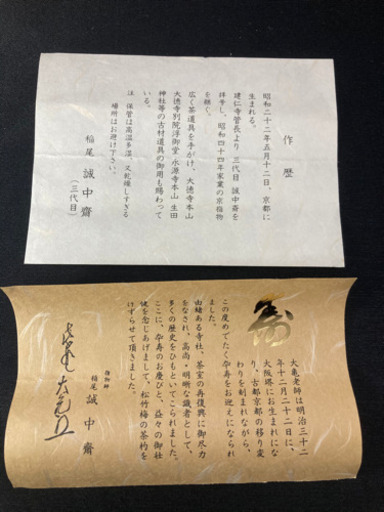 作歴
昭和二十二年五月十二日、京都に
生まれる。
建仁寺管長より 三代目 誠中斎を
拝号し、昭和四十四年家業の京指物
を継ぐ。
広く茶道具を手がけ、大徳寺本山
大徳寺別院浮御堂 永源寺本山 生田
神社等の古材道具の御用も賜わって
いる。
注 保管は高温多湿、又乾燥しすぎる
場所はお避け下さい。
稲尾 誠中齋
(三代目)
寿
大亀老師は明治三十二
年十二月二十二日に、
大阪堺にお生まれにな
り、古都京都の移り変
わりを刻まれながら、
この度めでたく卒寿をお迎えになられ
ました。
由緒ある寺社、茶室の再復興に御尽力
をなされ、高尚・明晰な識者として、
多くの歴史をひもといてこられました。
ここに、卒寿のお慶びと、益々の御壮
健を念じあげまして、松竹梅の茶杓を
けずらせて頂きました。
指物師
稲尾 誠中齋